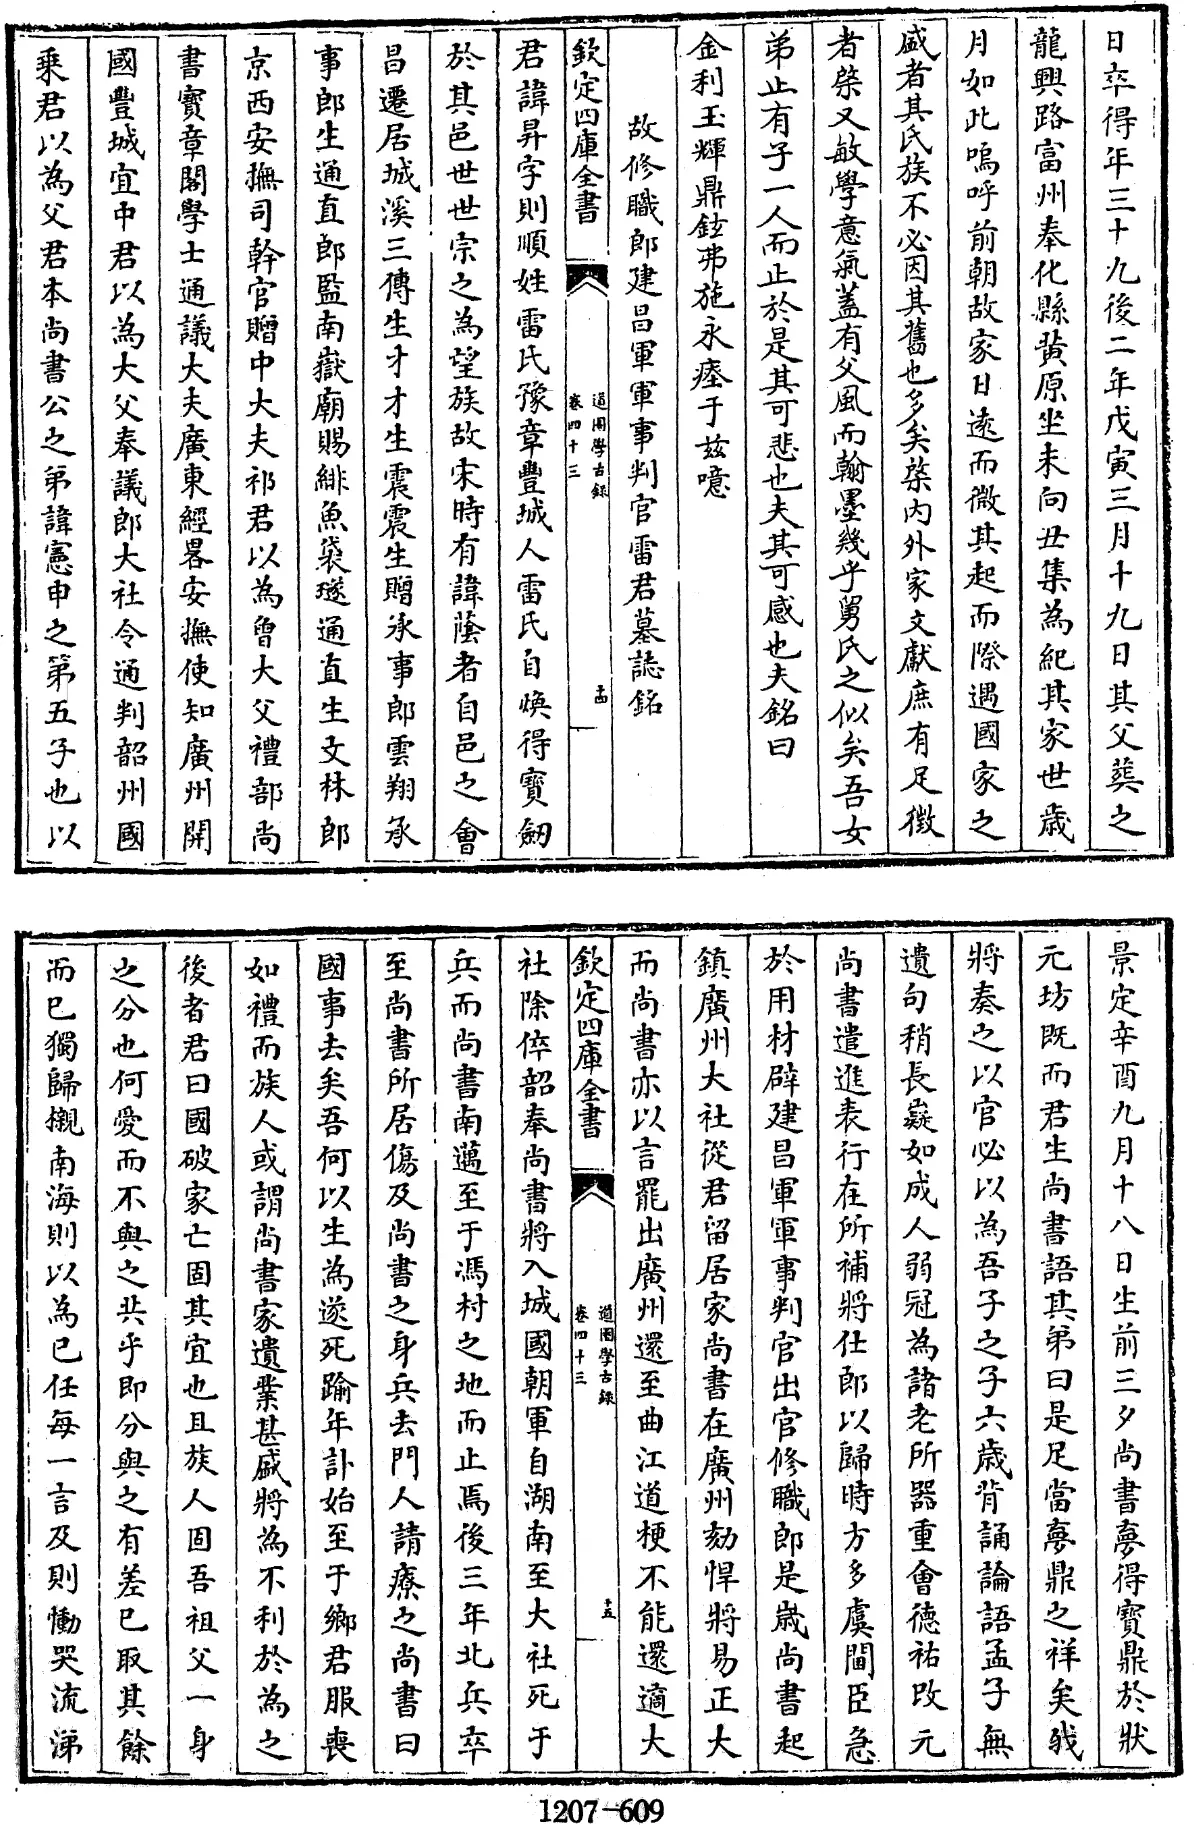 日卒得年三十九後二年戊寅三月十九日其父葬之
龍興路富州奉化縣黄原坐未向丑集為紀其家世歳
月如此嗚呼前朝故家日遠而微其起而際遇國家之
盛者其氏族不必因其舊也多矣棨内外家文獻庶有足徵
者棨又敏學意氣蓋有父風而翰墨幾乎舅氏之似矣吾女
弟止有子一人而止於是其可悲也夫其可感也夫銘曰
金利玉輝鼎鉉弗施永瘞于兹噫
故修職郎建昌軍軍事判官雷君墓誌銘
欽定四庫全書
道園學古録
卷四十三
十四
君諱昇字則順姓雷氏豫章豐城人雷氏自煥得寶劒
於其邑世世宗之為望族故宋時有諱蔭者自邑之會
昌遷居城溪三傳生才才生震震生贈承事郎雲翔承
事郎生通直郎監南嶽廟賜緋魚袋璲通直生文林郎
京西安撫司幹官贈中大夫祁君以為曾大父禮部尚
書寶章閣學士通議大夫廣東經畧安撫使知廣州開
國豐城宜中君以為大父奉議郎大社令通判韶州國
乘君以為父君本尚書公之弟諱憲申之第五子也以
景定辛酉九月十八日生前三夕尚書夢得寶鼎於狀
元坊既而君生尚書語其弟曰是足當夢鼎之祥矣我
將奏之以官必以為吾子之子六歳背誦論語孟子無
遺句稍長嶷如成人弱冠為諸老所器重會德祐改元
尚書遣進表行在所補將仕郎以歸時方多虞閫臣急
於用材辟建昌軍軍事判官出官修職郎是歳尚書起
鎮廣州大社從君留居家尚書在廣州劾悍將易正大
而尚書亦以言罷出廣州還至曲江道梗不能還適大
欽定四庫全書
道園學古録
卷四十三
十五
社除倅韶奉尚書將入城國朝軍自湖南至大社死于
兵而尚書南邁至于馮村之地而止焉後三年北兵卒
至尚書所居傷及尚書之身兵去門人請療之尚書曰
國事去矣吾何以生為遂死踰年訃始至于鄉君服喪
如禮而族人或謂尚書家遺業甚盛將為不利於為之
後者君曰國破家亡固其宜也且族人固吾祖父一身
之分也何愛而不與之共乎即分與之有差已取其餘
而已獨歸櫬南海則以為己任每一言及則慟哭流涕
1207-609